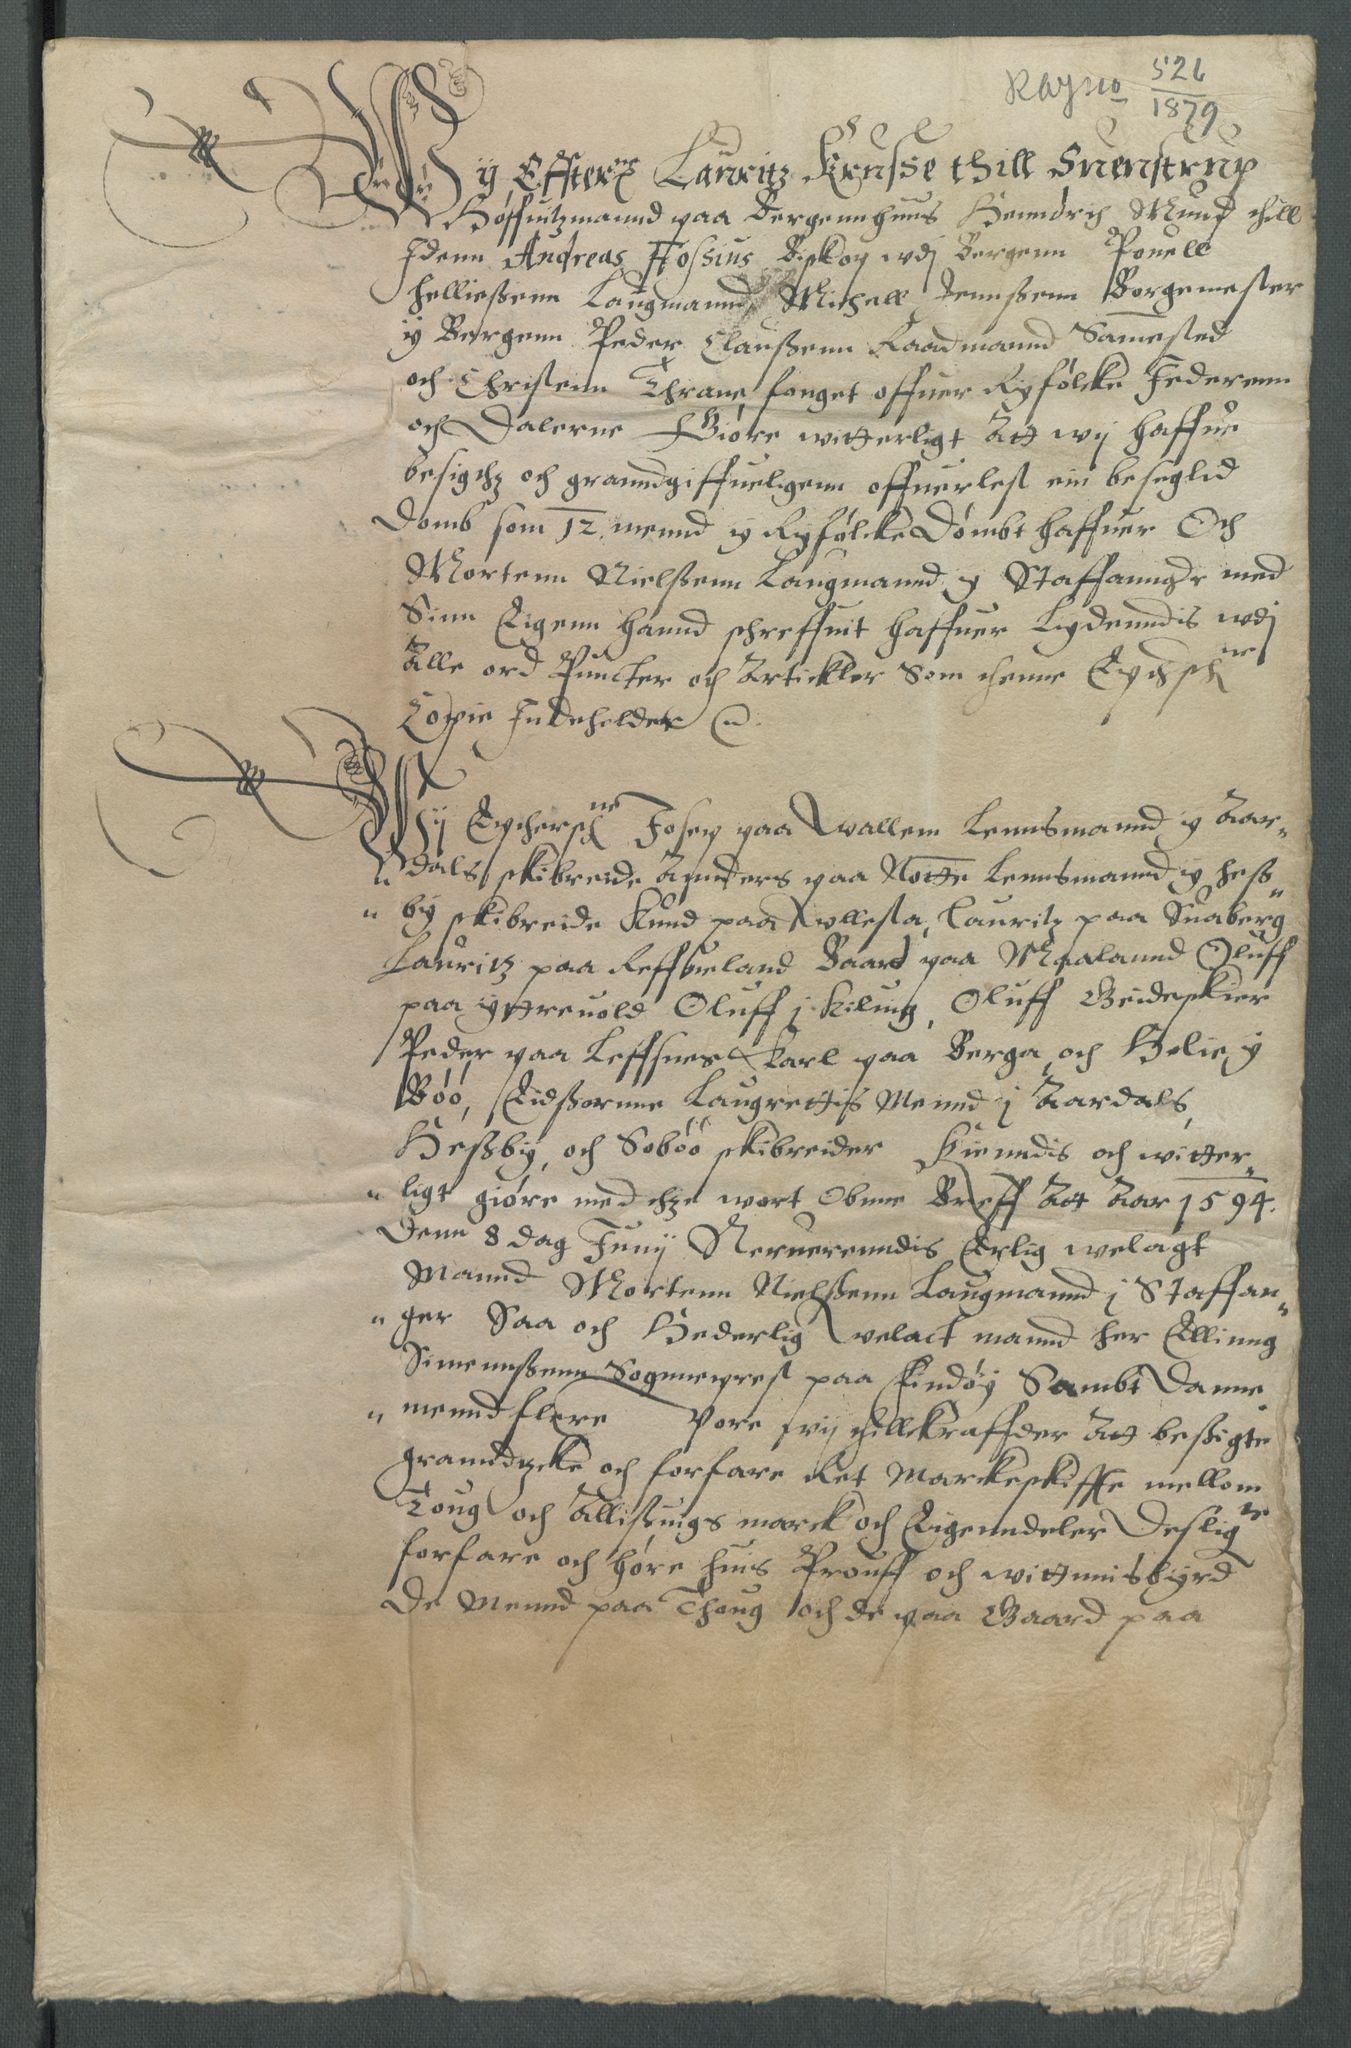 Rayno 526
1879
Wij Effterne Lauritz Krusse thill Suenstrup
Høffuitzmannd paa Bergennhuus Henndrich Munk thill
Idenn Andreas Fossius Biskop wdj Bergenn Pouell
Helliessenn Laugmannd Michell Jennssenn Borgemester
y Bergenn Peder Claussenn Raadmannd Samested
och Christenn Thrane foeget offuer Ryfølcke Jederenn
och Dalerne Giøre witterligt Att wij haffue
besigtz och granndgiffueligenn offuerlest ein beseglid
Domb som 12 mennd y Ryfølcke Dømbt haffuer Och
Mortenn Nielssenn Laugmannd y Staffannger med
Sinn Eigenn hannd schreffuit haffuer Lydenndis wdj
Alle ord Puncter och Artickler Som thenne
Copie Indeholder

Wij Josep paa Wallem Lennsmannd y Aar-
dals skibreide Annders paa Notte Lennsmannd y Hess-
by skibreide Knud paa Wllesta, Lauritz paa Suaberg
Lauritz paa Reffueland Baard paa Maalannd Oluff
paa yttreuold Oluff j Kilinng, Oluff Geideskier
Peder paa Leffsnes Karl paa Berga och Helie y
Bøø, Eidssorne Laugrettis Mennd j Aardals,
Hessby, och Sobøø skibreider Kienndis och witter-
ligt giøre med thze wort Obne Breff Att Aar 1594.
Denn 8 dag Junij Neruerenndis Erlig welagt
Mannd Mortenn Nielssenn Laugmannd j Staffan-
ger Saa och Hederlig welact mannd her Ellinng
Simennssenn Sogneprest paa Findøy Sambt Danne
mennd flere Vore wij thillkraffder Att bessigte
granndtzcke och forfare Ret Markeskiffe mellom
Toug och Allissuigs marck och Eigenndeler Deslige
forfare och høre huis Prouff och wittnisbyrd
De Mennd paa Thoug och de paa Gaard paa